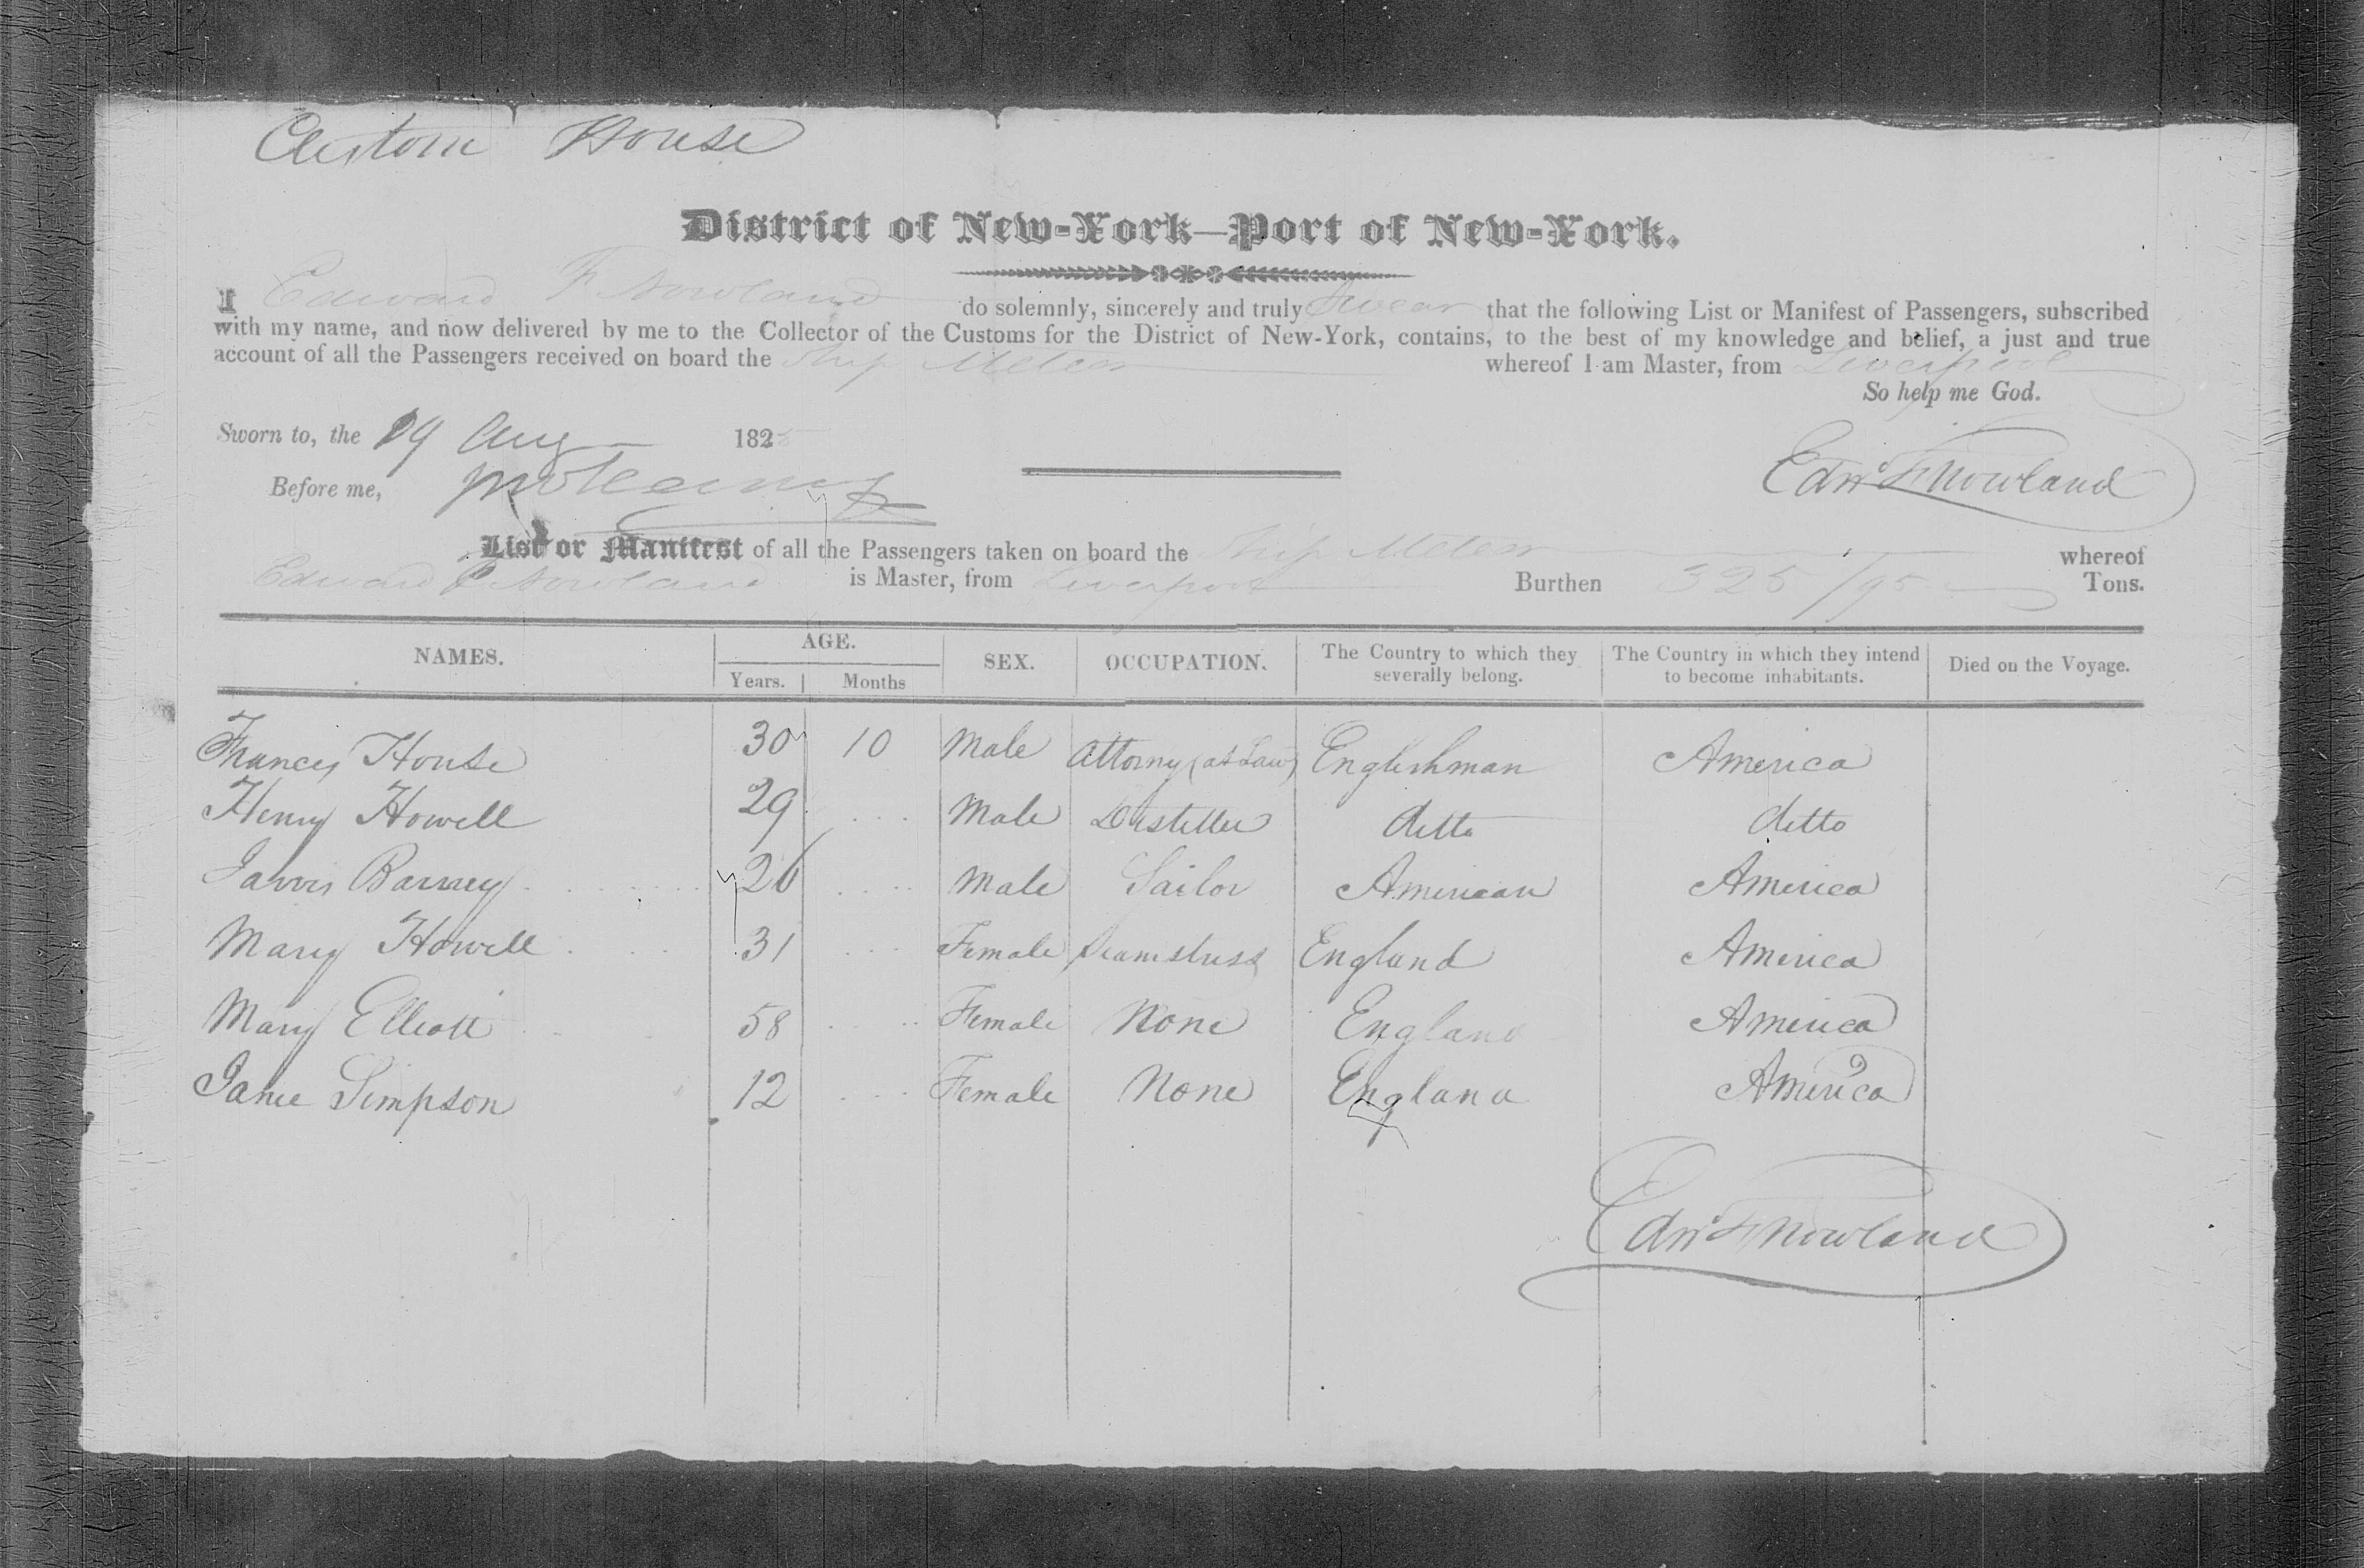 Custom House
District of New-York—Port of New-York.
I Edward F Nowland do solemnly, sincerely and truly swear that the following List or Manifest of Passengers, subscribed
with my name, and now delivered by me to the Collector of the Customs for the District of New-York, contains, to the best of my knowledge and belief, a just and true
account of all the Passengers received on board the Ship Meteor whereof I am Master, from Liverpool
So help me God.
Sworn to, the 19 Aug 1825
Before me,
Edwd F Nowland
List or Manifest of all the Passengers taken on board the Ship Meteor whereof
Edward F Nowland is Master, from Liverpool Burthen 325/95 Tons.
NAMES. AGE. Years. Months SEX. OCCUPATION. The Country to which they severally belong. The Country in which they intend to become inhabitants. Died on the Voyage.
Francis House 30 10 Male Attorny (at Law) Englishman America
Henry Howell 29 Male Distiller ditto ditto
Jarvis Barney 26 Male Sailor American America
Mary Howell 31 Female Seamstress England America
Mary Elliott 58 Female None England America
Jane Simpson 12 Female None England America
Edwd F Nowland